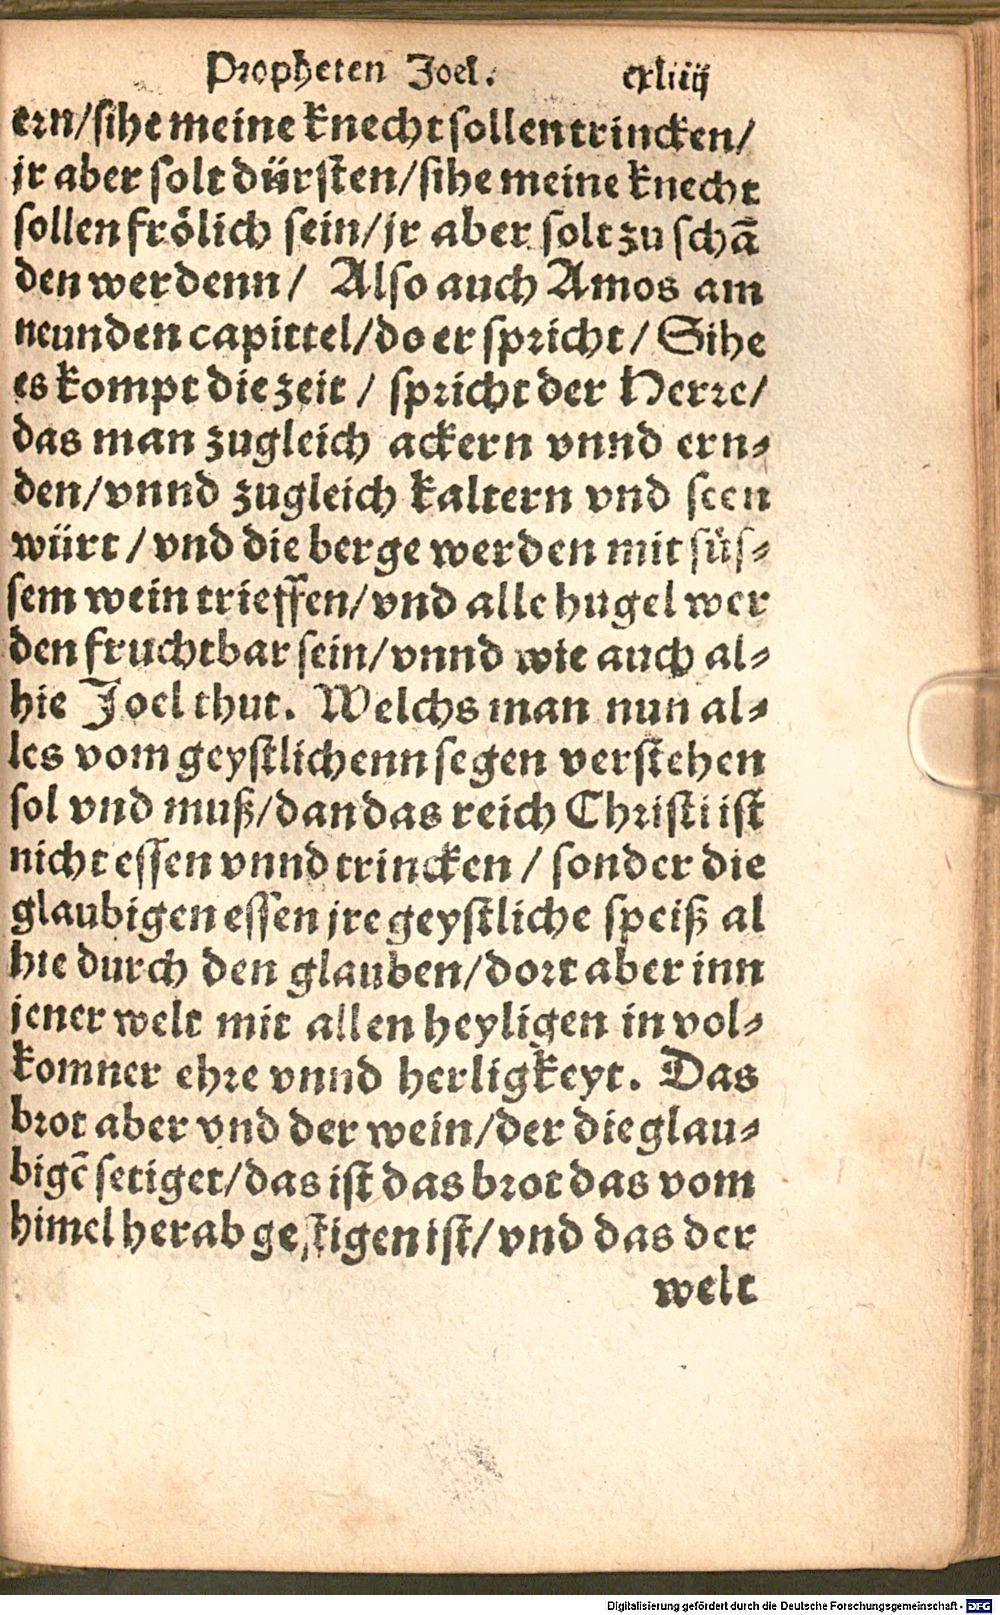 Propheten Joel. cxliiij
ern/sihe meine knecht sollen trincken/
jr aber solt dürsten/sihe meine knecht
sollen frölich sein/jr aber solt zu schā
den werdenn/ Also auch Amos am
neunden capittel/do er spricht/ Sihe
es kompt die zeit / spricht der Herre/
das man zugleich ackern vnnd ern-
den/vnnd zugleich kaltern vnd seen
würt /vnd die berge werden mit süs-
sem wein trieffen/vnd alle hugel wer
den fruchtbar sein/vnnd wie auch al-
hie Joel thut. Welchs man nun al-
les vom geystlichenn segen verstehen
sol vnd muß/dan das reich Christi ist
nicht essen vnnd trincken / sonder die
glaubigen essen jre geystliche speiß al
hie durch den glauben/dort aber inn
jener welt mit allen heyligen in vol-
komner ehre vnnd herligkeyt. Das
brot aber vnd der wein/der die glau-
bigē setiget/das ist das brot das vom
himel herab gestigen ist/vnd das der
welt
Digitalisierung gefördert durch die Deutsche Forschungsgemeinschaft - DFG